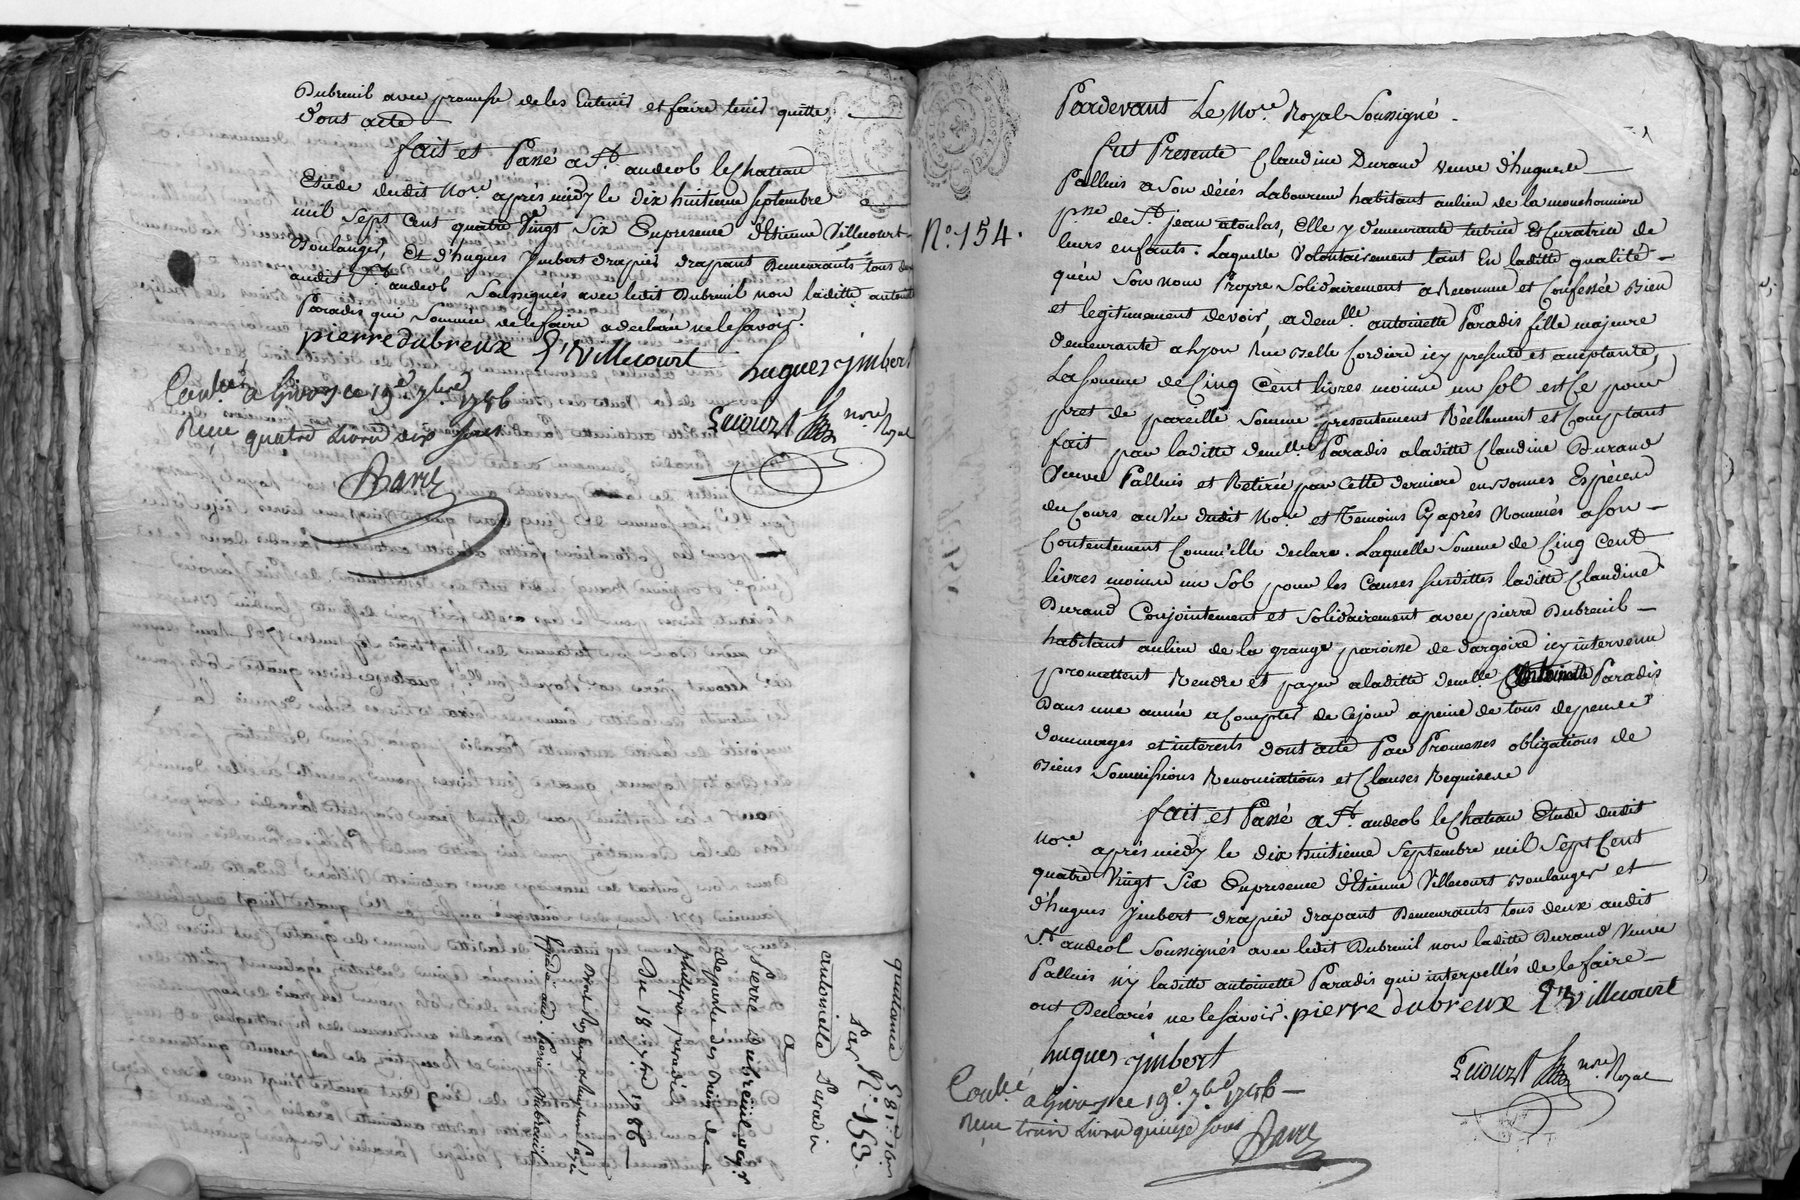 Dubreuil avec promesse de les Entenir et faire tenir quitte,
D'ont acte
fait et Passé a St. andeol le Chateau
Etude dudit Nore. après midy le dix huitieme septembre
mil sept Cent quatre Vingt Six Enpresence d'Etienne Villecourt
Boulanger, Et d'hugues jmbert drapier drapant Demeurants tous deux
audit St. andeol Soussignés avec ledit Dubreuil non laditte antoinette
Paradis qui Sommée de le faire a declarée ne le Savoir.
pierre dubreux E, Villecourt hugues jmbert
Conlé. a Givors ce 19e. 7bre 1786
Reçu quatre Livres dix sous
Lecourt nore. Royal
Barre
quittance 581lt 10s
Par N.o 153.
antoinette Paradis
a
Pierre Dubreuil
philippe paradis
Du 18 7bre 1786
Pardevant Le Nore. Royal Soussigné
N.o 154.
fut Presente Claudine Durand veuve d'hugues
Palluis a Son décés Laboureur habitant au lieu de la mouchonniere
psse de St. jean atoulas, Elle y demeurante tutrice Et Curatrice de
leurs enfants. Laquelle Volontairement tant En laditte qualité
qu'en Son nom Propre Solidairement a Reconnue et Confessée Bien
et legitimement devoir, a demlle. antoinette Paradis fille majeure
demeurante a Lyon Rue Belle Cordiere icy presente et acceptante,
La somme de Cinq Cent livres moins un sol et Ce pour
pret de pareille Somme presentement Réellement et Comptant
fait par laditte demlle. Paradis a laditte Claudine Durand
Veuve Palluis et Retirée par Cette derniere en Bonnes Espèces
du Cours au Vu dudit Nore. et Temoins Cy après Nommés a son
Contentement Comm'elle declare. Laquelle Somme de Cinq Cent
livres moins un Sol pour les Causes Susdittes laditte Claudine
Durand Conjointement et Solidairement avec pierre Dubreuil
habitant au lieu de la grange paroisse de dargoire icy intervenu
promettent Rendre et payer a laditte demlle. Paradis
Dans une année a Compter de Cejour a peine de tous depens
dommages et interests dont acte Par Promesses obligations de
Biens Soumissions Renonciations et Clauses Requises
fait et Passé a St. andeol le Chateau Etude dudit
Nore. après midy le dix huitieme Septembre mil Sept Cent
quatre Vingt Six Enpresence d'Etienne Villecourt Boulanger et
d'hugues jmbert drapier drapant Demeurants tous deux audit
St. andeol Soussignés avec ledit Dubreuil non laditte Durand Veuve
Palluis n'y laditte antoinette Paradis qui interpellés de le faire
ont Declarés ne le savoir. pierre dubreux E, Villecourt
hugues jmbert Lecourt nore. Royal
Conlé. a Givors ce 19e. 7bre 1786
Reçu trois Livres quinze sous
Barre